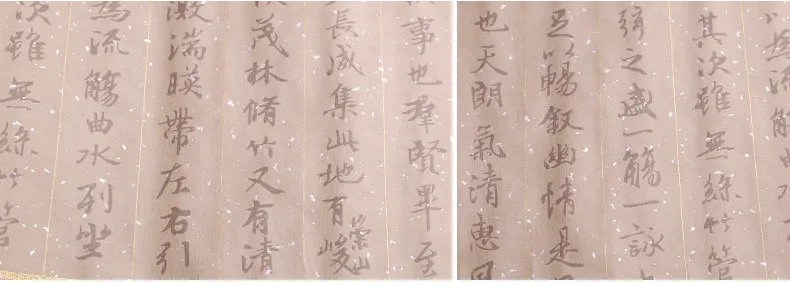 事也群賢畢至
長咸集此地有崇山峻
茂林脩竹又有清
激湍暎帶左右引
為流觴曲水列坐
次雖無絲竹管
為流觴曲水
其次雖無絲竹管
弦之盛一觴一詠
足以暢敘幽情是
也天朗氣清惠風